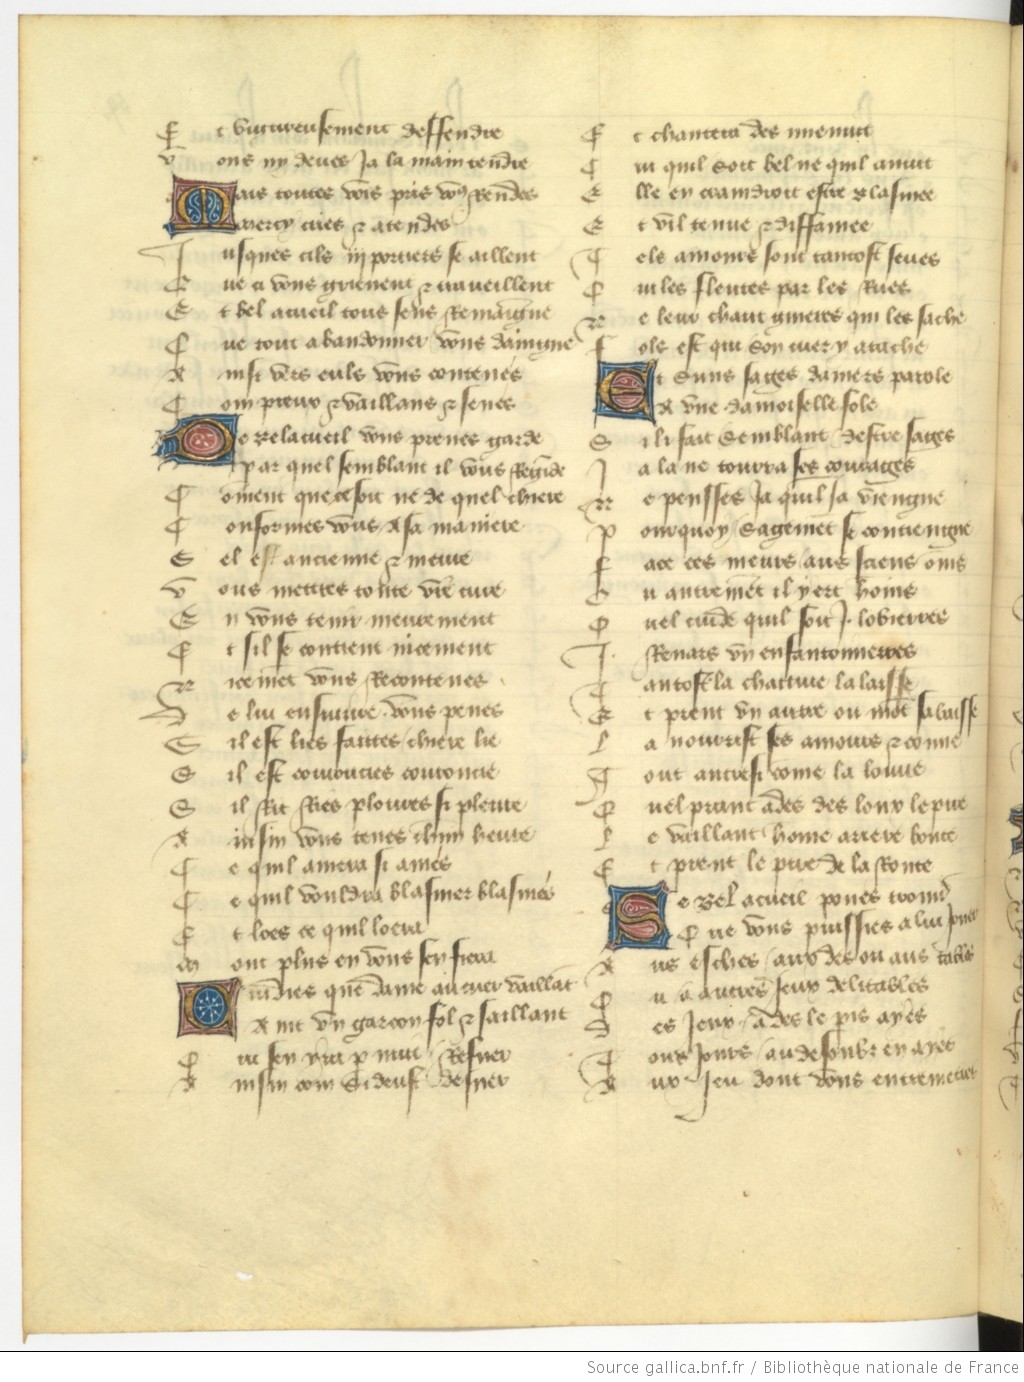 E t vigureusement deffendre
V ous ny deves ja la main tendre
Mais toutes vois pris vous rendes
mercy cries et atendes
J usques cils iij portiers se aillent
Q ue ci vous grievent et travaillent
E t bel acueil tous seus remaingne
Q ue tout abandonner vous daingne
A insi vers euls vous contenes
C om preux et vaillans et senes
De belacueil vous prenes garde
par quel semblant il vous regarde
C oment que ce soit ne de quel chiere
C onformes vous a sa maniere
S el est ancienne et meure
V ous mettres toute vostre cure
E n vous tenir meurement
E t sil se contient nicement
N icement vous recontenes
D e lui ensuivre vous penes
S il est lies faites chiere lie
S il est courucies couroucie
S il rit ries ploures si pleure
A insin vous tenes chascune heure
C e quil amera si ames
C e quil vouldra blasmer blasmes
E t loes ce quil loera
M out plus en vous sen fiera
Cuidies que dame au cuer vaillant
A int un garcon fol et saillant
Q ui sen yra par nuit resver
A insin com si deust desver
E t chantera des mienuit
C ui quil soit bel ne quil anuit
E lle en craindroit estre blasmee
E t vil tenue et diffamee
T els amours sont tantost seues
Q uiles fleutes par les rues
N e leur chaut gueres qui les sache
F ole est qui son cuer y atache
Et suns sages damers parole
A une damoiselle fole
S il i fait semblant destre sages
J a la ne tourra ses courages
N e pensses ja quil ja viengne
P ourquoy sagement se contiengne
F ace ces meurs aus siens onis
O u autrement il yert honis
Q uel cuide quil soit j. lobierres
J. Renars un enfantonneres
T antost la chative la laisse
E t prent un autre ou mout sabaisse
L a nourrist ses amours et conne
T out autresi come la louve
Q uel prant ades des loux le pire
L e vaillant home arriere boute
E t prent le pire de la route
Se bel acueil poues trouver
Q ue vous puissies a lui jouer
A us esches aux des ou aus tables
O u a autres jeux delitables
D es jeux ades le pis ayes
T ous jours au desoubz en ayes
A ux jeu dont vous entremetres
Source gallica.bnf.fr / Bibliothèque nationale de France